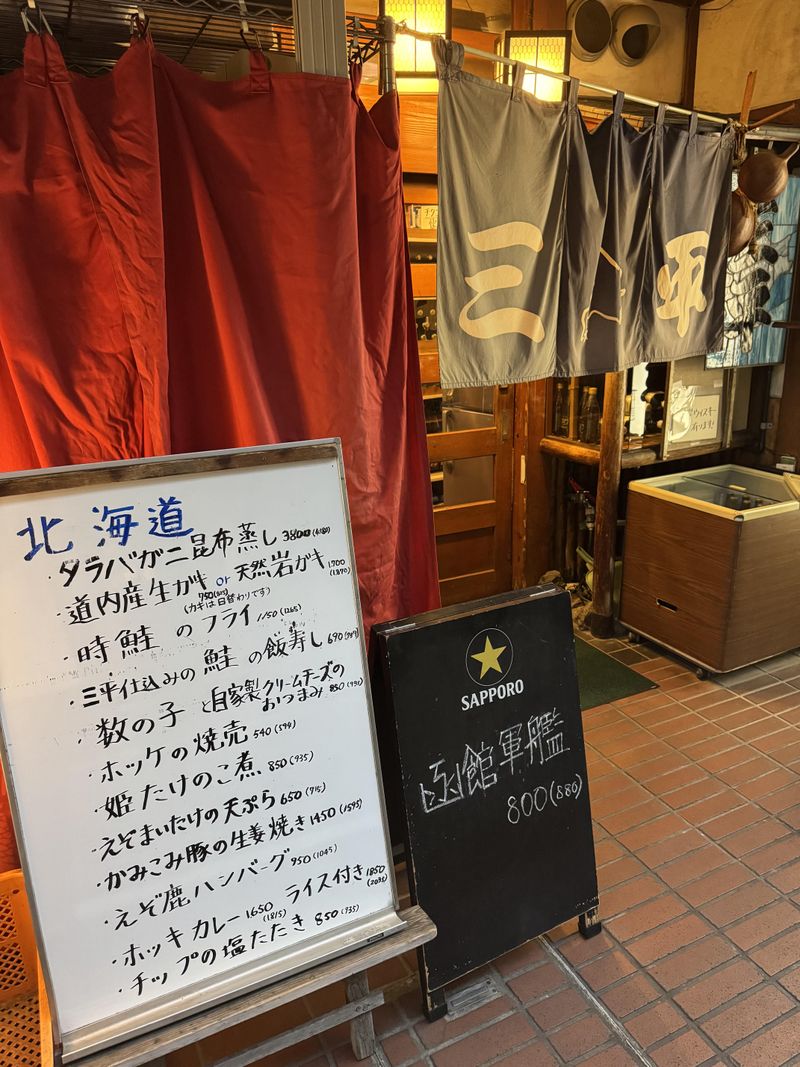 三平
北海道
・タラバガニ昆布蒸し 3800(4180)
・道内産生ガキ or 天然岩ガキ 1700(1870)
(カキは日替わりです)
・時鮭のフライ 1150(1265)
・三平仕込みの鮭の飯寿し 690
・数の子と自家製クリームチーズのおつまみ 850(935)
・ホッケの焼売 540(594)
・姫たけのこ煮 850(935)
・えぞまいたけの天ぷら 650(715)
・かみこみ豚の生姜焼き 1450(1595)
・えぞ鹿ハンバーグ 950(1045) ライス付き 1850(2035)
・ホッキカレー 1650(1815)
・チップの塩たたき 850(935)
SAPPORO
函館軍艦
800(880)
ウィスキー